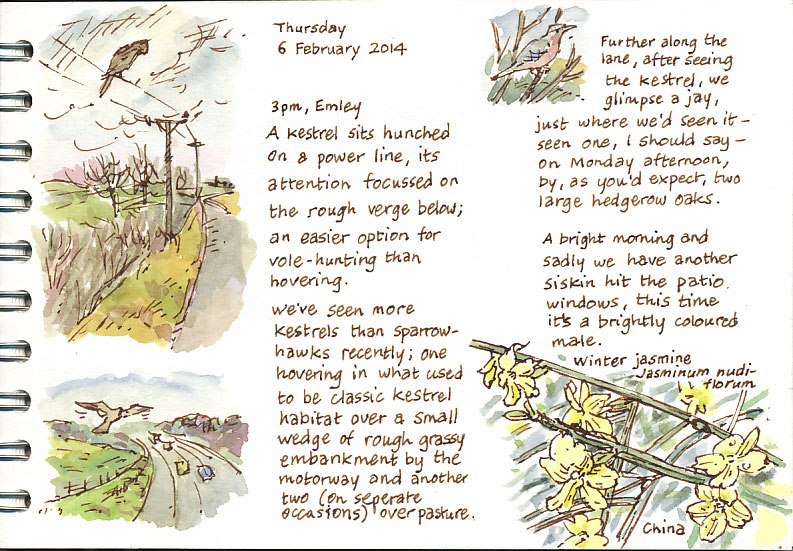 Thursday
6 February 2014
3pm, Emley
A kestrel sits hunched
on a power line, its
attention focussed on
the rough verge below;
an easier option for
vole-hunting than
hovering.
We've seen more
kestrels than sparrow-
hawks recently; one
hovering in what used
to be classic kestrel
habitat over a small
wedge of rough grassy
embankment by the
motorway and another
two (on seperate
occasions) over pasture.
Further along the
lane, after seeing
the kestrel, we
glimpse a jay,
just where we'd seen it –
seen one, I should say –
on Monday afternoon,
by, as you'd expect, two
large hedgerow oaks.
A bright morning and
sadly we have another
siskin hit the patio
windows, this time
it's a brightly coloured
male.
Winter jasmine
Jasminum nudi-
florum
China